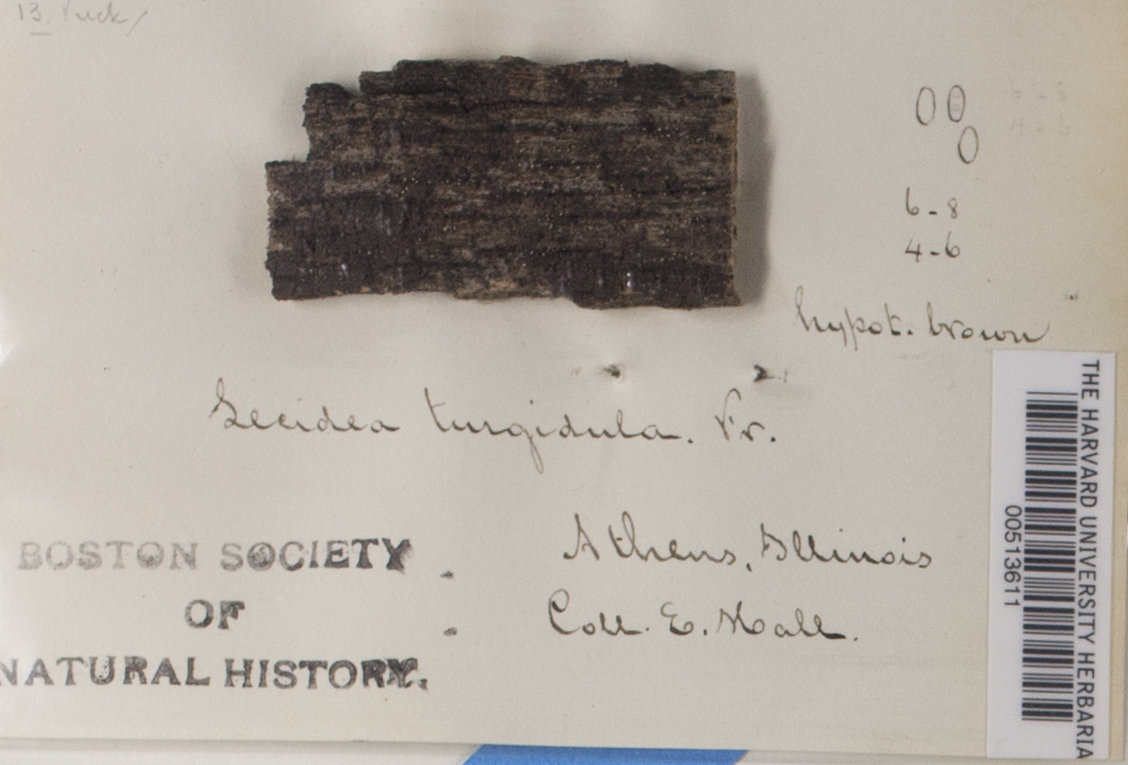 13. Tuck/
6-8
4-6
hypot. brown
Lecidea turgidula. Fr.
Athens, Illinois
Coll. E. Hall.
BOSTON SOCIETY
OF
NATURAL HISTORY.
THE HARVARD UNIVERSITY HERBARIA
00513611